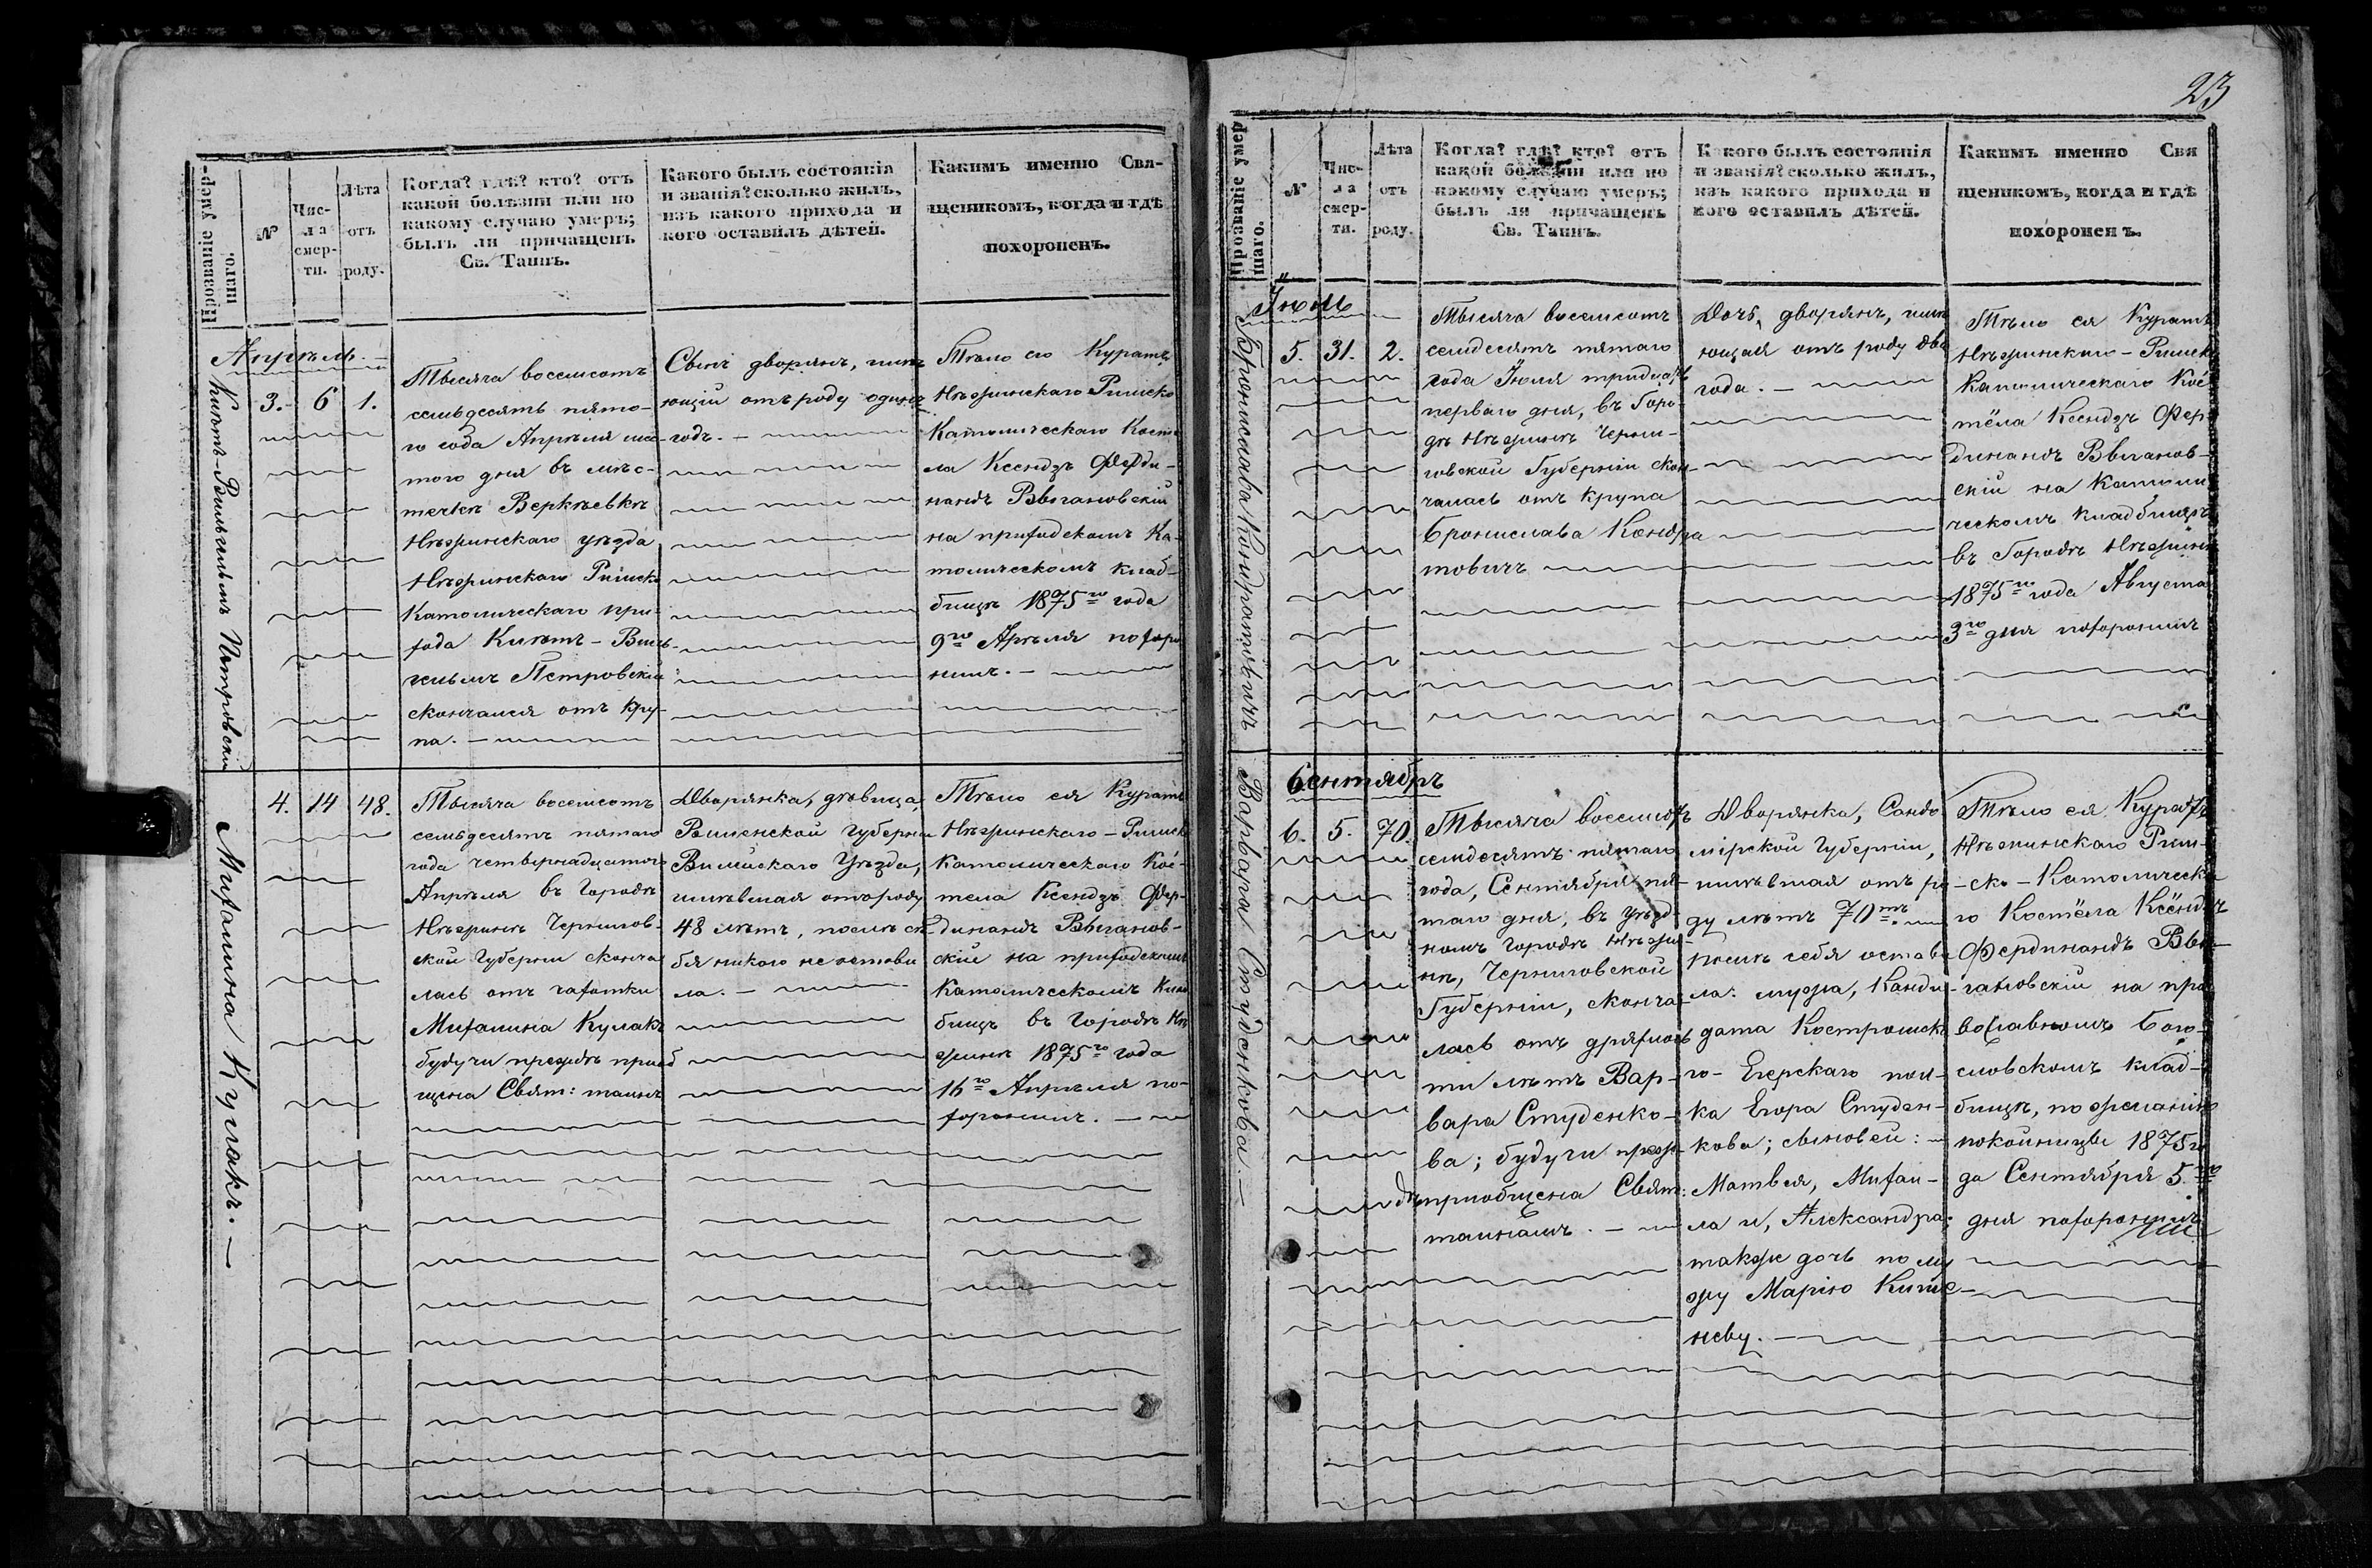 23
Прозваніе умер-
шаго.
№
Чис-
ла
смер-
ти.
Лѣта
отъ
роду.
Когда? гдѣ? кто? отъ
какой болѣзни или по
какому случаю умеръ;
былъ ли причащенъ
Св. Таинъ.
Какого былъ состоянія
и званія? сколько жилъ,
изъ какого прихода и
кого оставилъ дѣтей.
Какимъ именно Свя-
щеникомъ, когда и гдѣ
похороненъ.
Апрѣль. —
Петровскій
3. 6 1.
Тысяча восемсотъ
семьдесятъ пято-
го года Апрѣля шес-
того дня въ мѣс-
течкѣ Веркѣевкѣ
Нѣжинскаго уѣзда
Нѣжинскаго Римско
Католическаго при-
хода
Петровскій
скончался отъ кру-
па. —
Сынъ дворянъ, имѣ
ющій отъ роду одинъ
годъ. —
Тѣло его Куратъ
Нѣжинскаго Римско
Католическаго Косте
ла Ксендзъ Ферди-
нандъ Выгановскій
на приходскомъ Ка-
толическомъ клад-
бищѣ 1875го года
9го Апрѣля похоро
нилъ. —
Михалина Кулакъ. —
4. 14 48.
Тысяча восемсотъ
семьдесятъ пятаго
года четвернадцатого
Апрѣля въ Городѣ
Нѣжинѣ Чернигов-
ской Губерніи сконча
лась отъ чахотки
Михалина Кулакъ
будучи прежде приоб
щена Свят: таинъ
Дворянка, дѣвица,
Виленской губерніи
Вилейскаго Уѣзда,
имѣвшая отъ роду
48 лѣтъ, послѣ се
бя никого не остави
ла. —
Тѣло ея Куратъ
Нѣжинскаго-Римско
Католическаго Кос-
тела Ксендзъ Фер-
динандъ Выганов-
скій на приходскомъ
Католическомъ Клад
бищѣ въ Городѣ Нѣ
жинѣ 1875го года
16го Апрѣля по-
хоронилъ. —
Прозваніе умер
шаго.
№
Чис-
ла
смер-
ти.
Лѣта
отъ
роду.
Когда? гдѣ? кто? отъ
какой болѣзни или по
какому случаю умеръ;
былъ ли причащенъ
Св. Таинъ.
Какого былъ состоянія
и званія? сколько жилъ,
изъ какого прихода и
кого оставилъ дѣтей.
Какимъ именно Свя
щеникомъ, когда и гдѣ
похороненъ.
Іюль
Бронислава Кондратовичъ
5. 31. 2.
Тысяча восемсотъ
семдесятъ пятаго
года Іюля тридцать
перваго дня, въ Горо-
дѣ Нѣжинѣ Черни-
говской Губерніи скон-
чалась отъ крупа
Бронислава Кондра
товичъ
Дочь, дворянъ, имѣ
ющая отъ роду два
года. —
Тѣло ея Куратъ
Нѣжинскаго-Римско
Католическаго Кос
тёла Ксендзъ Фер
динандъ Выганов-
скій на Католи
ческомъ кладбищѣ
въ Городѣ Нѣжинѣ
1875го года Августа
3го дня похоронилъ
Сентябрь
Варвара Студенкова. —
6. 5. 70.
Тысяча восемсотъ
семдесятъ пятаго
года, Сентября пя-
таго дня, въ уѣзд-
номъ городѣ Нѣжи-
нѣ, Черниговской
Губерніи, сконча-
лась отъ дряхлос
ти лѣтъ Вар-
вара Студенко-
ва; будучи преж-
дѣ приобщена Свят:
таинамъ. —
Дворянка, Сандо
мірской Губерніи,
имѣвшая отъ ро
ду лѣтъ 70тъ.
Послѣ себя остави
ла: мужа, Канди-
дата Костромска
го-Егерскаго пол-
ка Егора Студен-
кова; сыновей:
Матвея, Михаи-
ла и, Александра;
также дочь по му
жу Марію Кише-
неву. —
Тѣло ея Куратъ
Нѣжинскаго Рим-
ско-Католическа
го Костёла Ксёндзъ
Фердинандъ Вы-
гановскій на пра
вославномъ Бого-
словскомъ клад-
бищѣ, по желанію
покойницы 1875 го
да Сентября 5го
дня похоронилъ